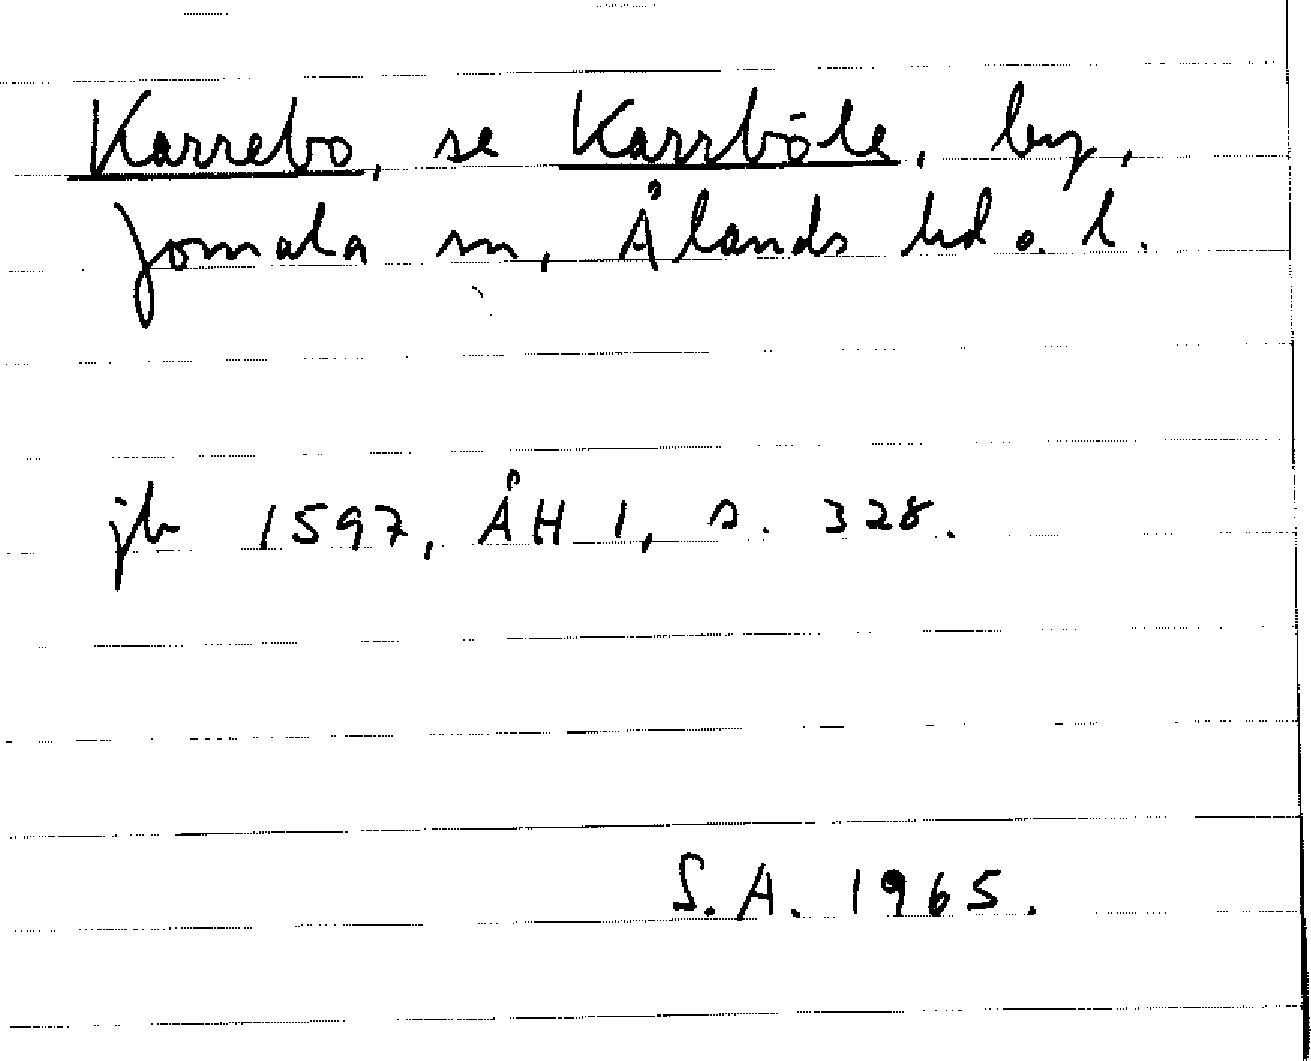 Karrebo, se Karrböle, by,
Jomala sn, Ålands hd o. l.
jb 1597, ÅH 1, s. 328.
S.A. 1965.